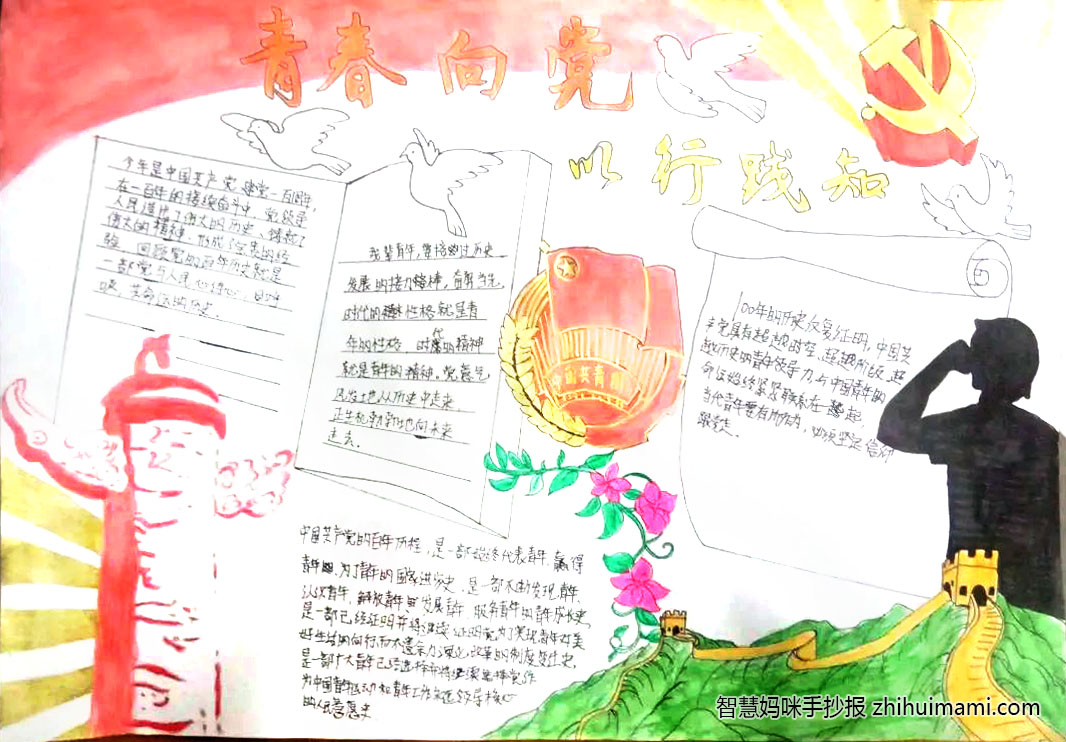 青春向党
以行践知
今年是中国共产党建党一百周年,
在一百年的接续奋斗中,党领导
人民造就了伟大的历史,铸就了
伟大的精神,形成了宝贵的经
验。回顾党的百年历史就是
一部党与人民心连心、同呼
吸、共命运的历史。
我辈青年,要接过历史
发展的接力棒,奋勇当先,
时代的性格就是青
年的性格,时代的精神
就是青年的精神。党意气
风发地从历史中走来,
正生机勃勃地向未来
走去。
中国共青团
100年的历史反复证明,中国共
产党具有超越时空、超越阶级、超
越历史的青年领导力,与中国青年的
命运始终紧紧联系在一起,
当代青年要有所作为,必须坚定信仰
跟党走。
中国共产党的百年历程,是一部始终代表青年、赢得
青年、为了青年的国家进步史,是一部不断发现青年、
认识青年、解放青年、发展青年、服务青年的青年成长史,
是一部已经证明并将继续证明党为了实现青年对美
好生活的向往而不遗余力
改革的制度变迁史,
是一部广大青年已经选择并将继续选择党作
为中国青年运动和青年工作领导核心
的人民意愿史
智慧妈咪手抄报 zhihuimami.com